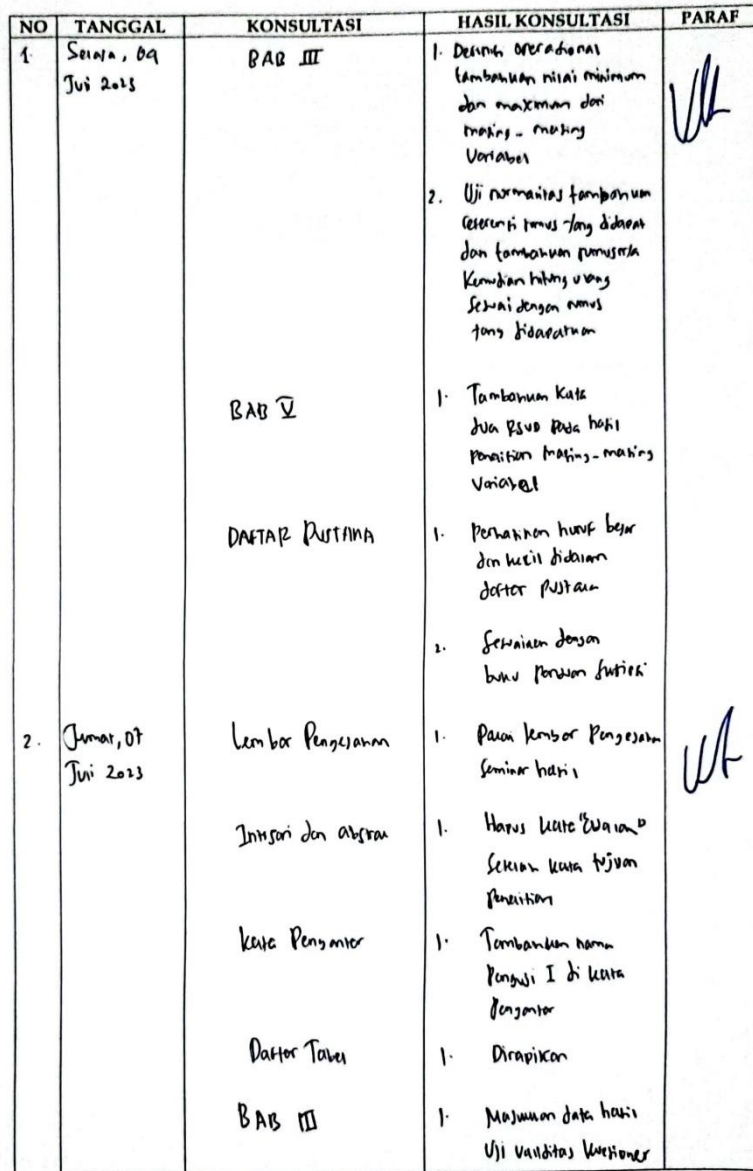 NO TANGGAL KONSULTASI HASIL KONSULTASI PARAF
1. Selasa, 04 Juli 2023
BAB III
1. Definisi operational
tambahkan nilai minimum
dan maximum dari
masing-masing
Variabel
2. Uji normalitas tambahkan
referensi rumus yang didapat
dan tambahkan rumusnya
Kemudian hitung ulang
Sesuai dengan rumus
yang didapatkan
BAB V
1. Tambahkan kata
dua RSUD pada hasil
penelitian masing-masing
Variabel
DAFTAR PUSTAKA
1. Perhatikan huruf besar
dan kecil didalam
daftar pustaka
2. Sesuaikan dengan
buku panduan skripsi
2. Jumat, 07
Juli 2023
Lembar Pengesahan
1. Pakai lembar pengesahan
Seminar hasil
Intisari dan abstrak
1. Harus kata
Setelah kata tujuan
Penelitian
Kata Pengantar
1. Tambahkan nama
Penguji I di kata
Pengantar
Daftar Tabel
1. Dirapikan
BAB III
1. Masukkan data hasil
Uji validitas kuesioner